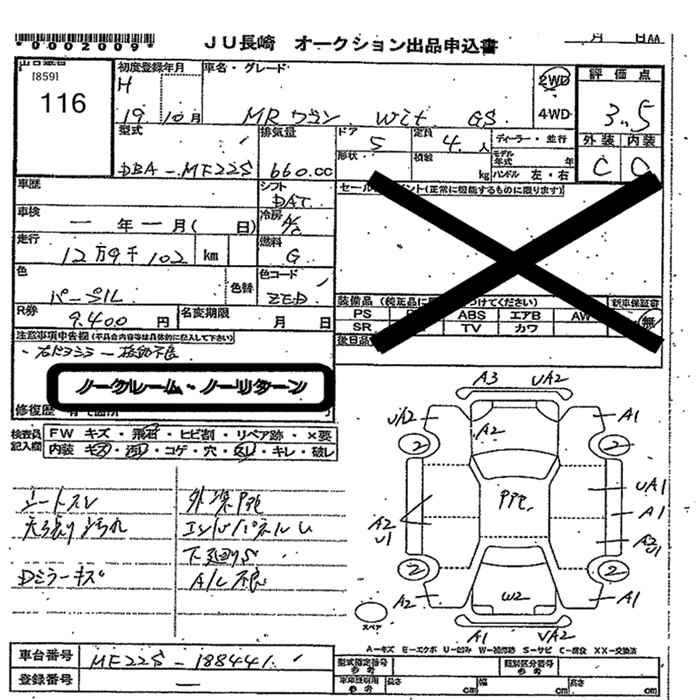 *0002009*
JU長崎 オークション出品申込書
月 日AA
[859]
116
初度登録年月
H
19. 10月
車名・グレード
MRワゴン Wit GS
2WD
4WD
評価点
3.5
外装 内装
C D
型式
DBA-MF22S
排気量
660.cc
ドア
5
定員
4.人
ディーラー・並行
形状
積載
kg
モデル年式 年
ハンドル 左・右
車歴
シフト
DAT
セールスポイント(正常に機能するものに限ります)
車検
ー 年 ー 月( 日)
冷房
A/C
走行
12万9千102 km
燃料
G
色
パープル
色替
色コード
ZED
装備品(純正品に
つけてください)
新車保証書
PS
ABS
エアB
AW
SR
TV
カワ
無
R券
9.400 円
名変期限
月 日
後日品
注意事項申告欄(不具合内容等は具体的に記入して下さい)
ノークレーム・ノーリターン
修復歴
検査員記入欄
FW キズ・飛石・ヒビ割・リペア跡・×要
内装 キズ・汚れ・コゲ・穴・スレ・キレ・破レ
シートスレ
天張り汚れ
Dミラーキズ
下廻りS
A/C不良
A3 UA2
UA2 A1
A2
2 2
UA1
A1
A2
U1
A2
U1
2 2
A2 A1
W2
A1 UA2
スペア
A-キズ E-エクボ U-凹み W-補修跡 S-サビ C-腐食 XX-交換済
車台番号
MF22S-188441
登録番号
ー
型式指定番号
参考
類別区分番号
参考
車体識別用
参考
長さ cm
幅 cm
高さ cm